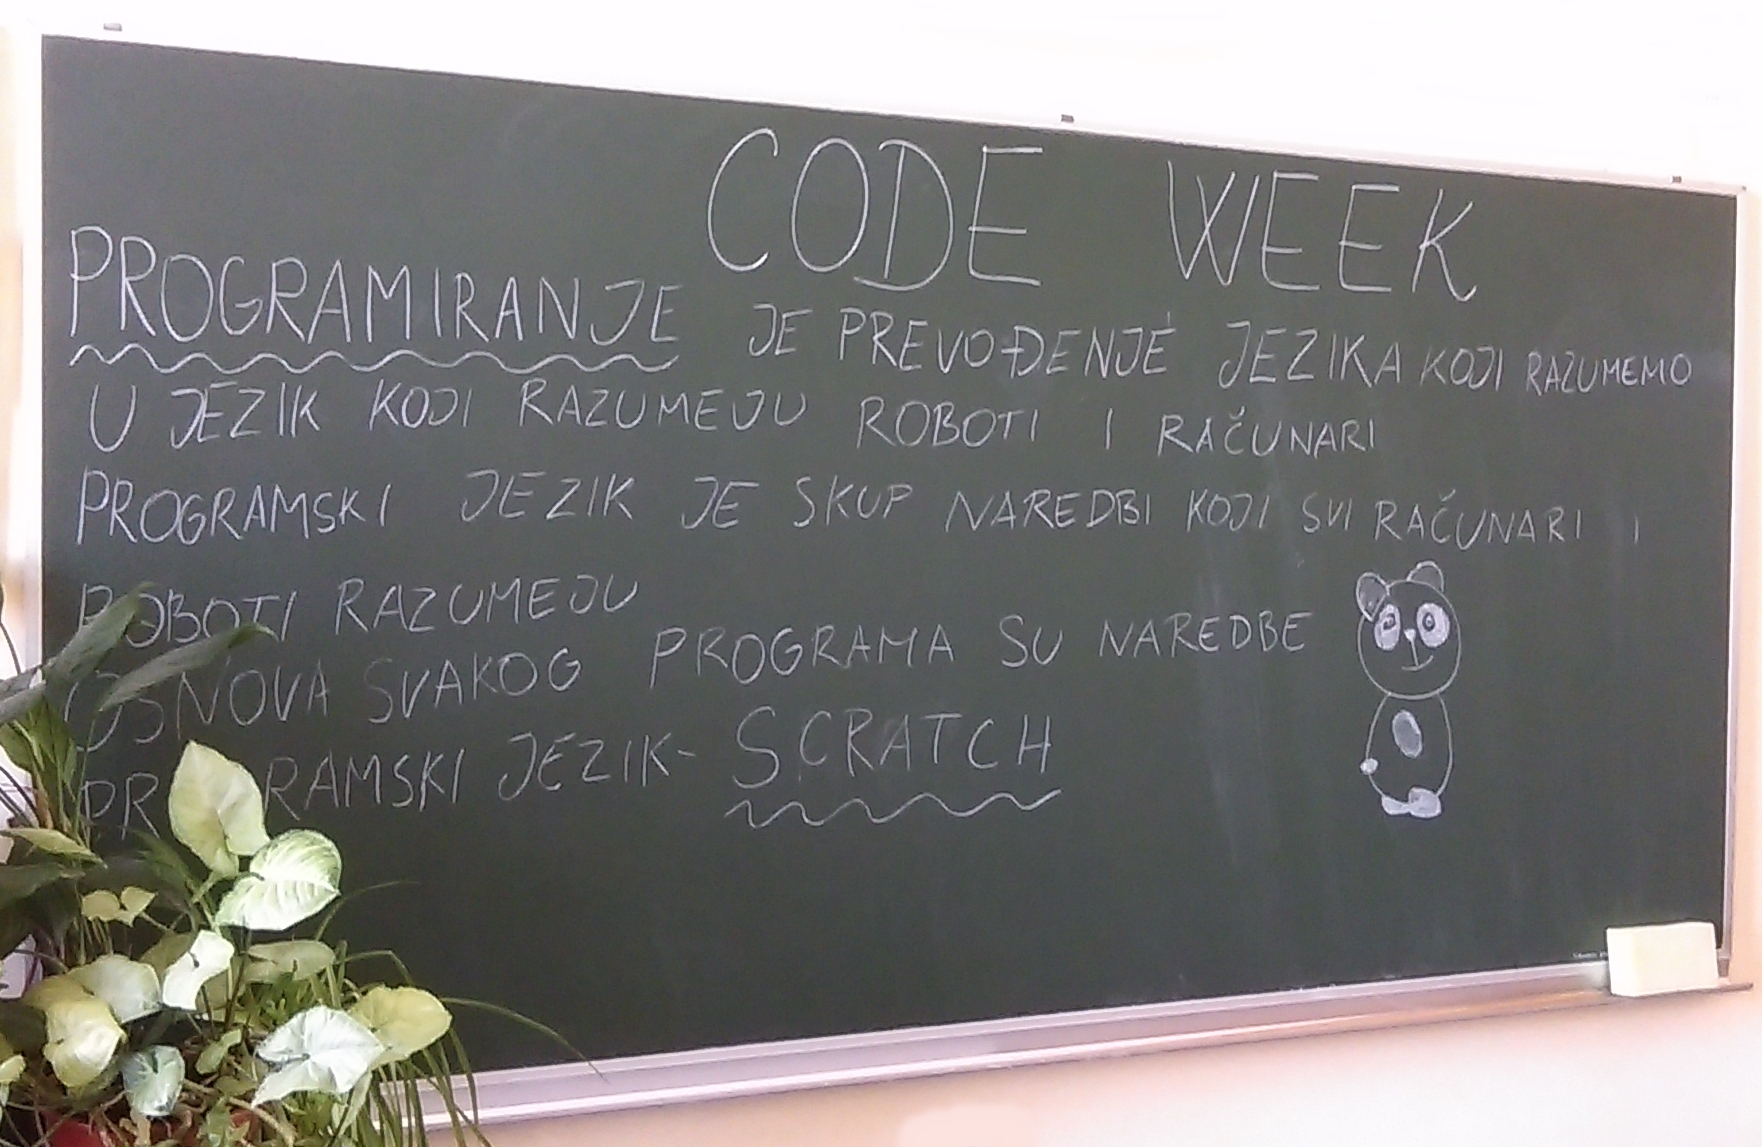 CODE WEEK
PROGRAMIRANJE JE PREVOĐENJE JEZIKA KOJI RAZUMEMO
U JEZIK KOJI RAZUMEJU ROBOTI I RAČUNARI
PROGRAMSKI JEZIK JE SKUP NAREDBI KOJI SVI RAČUNARI I
ROBOTI RAZUMEJU
OSNOVA SVAKOG PROGRAMA SU NAREDBE
PROGRAMSKI JEZIK- SCRATCH